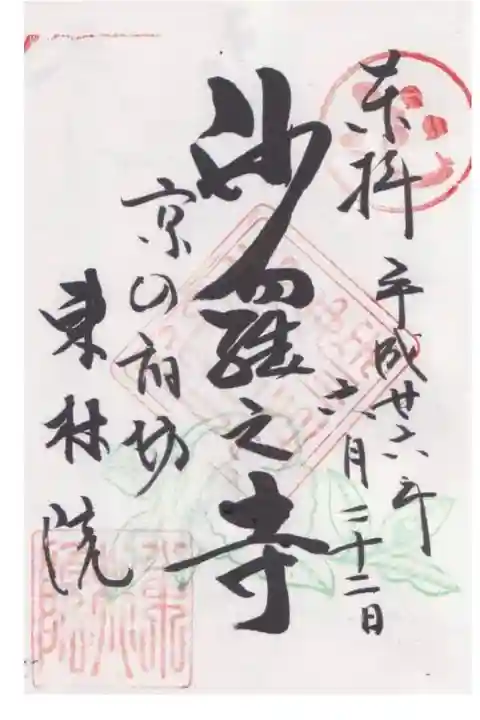 奉拝
平成廿六年
六月二十二日
沙羅之寺
京の
東林院